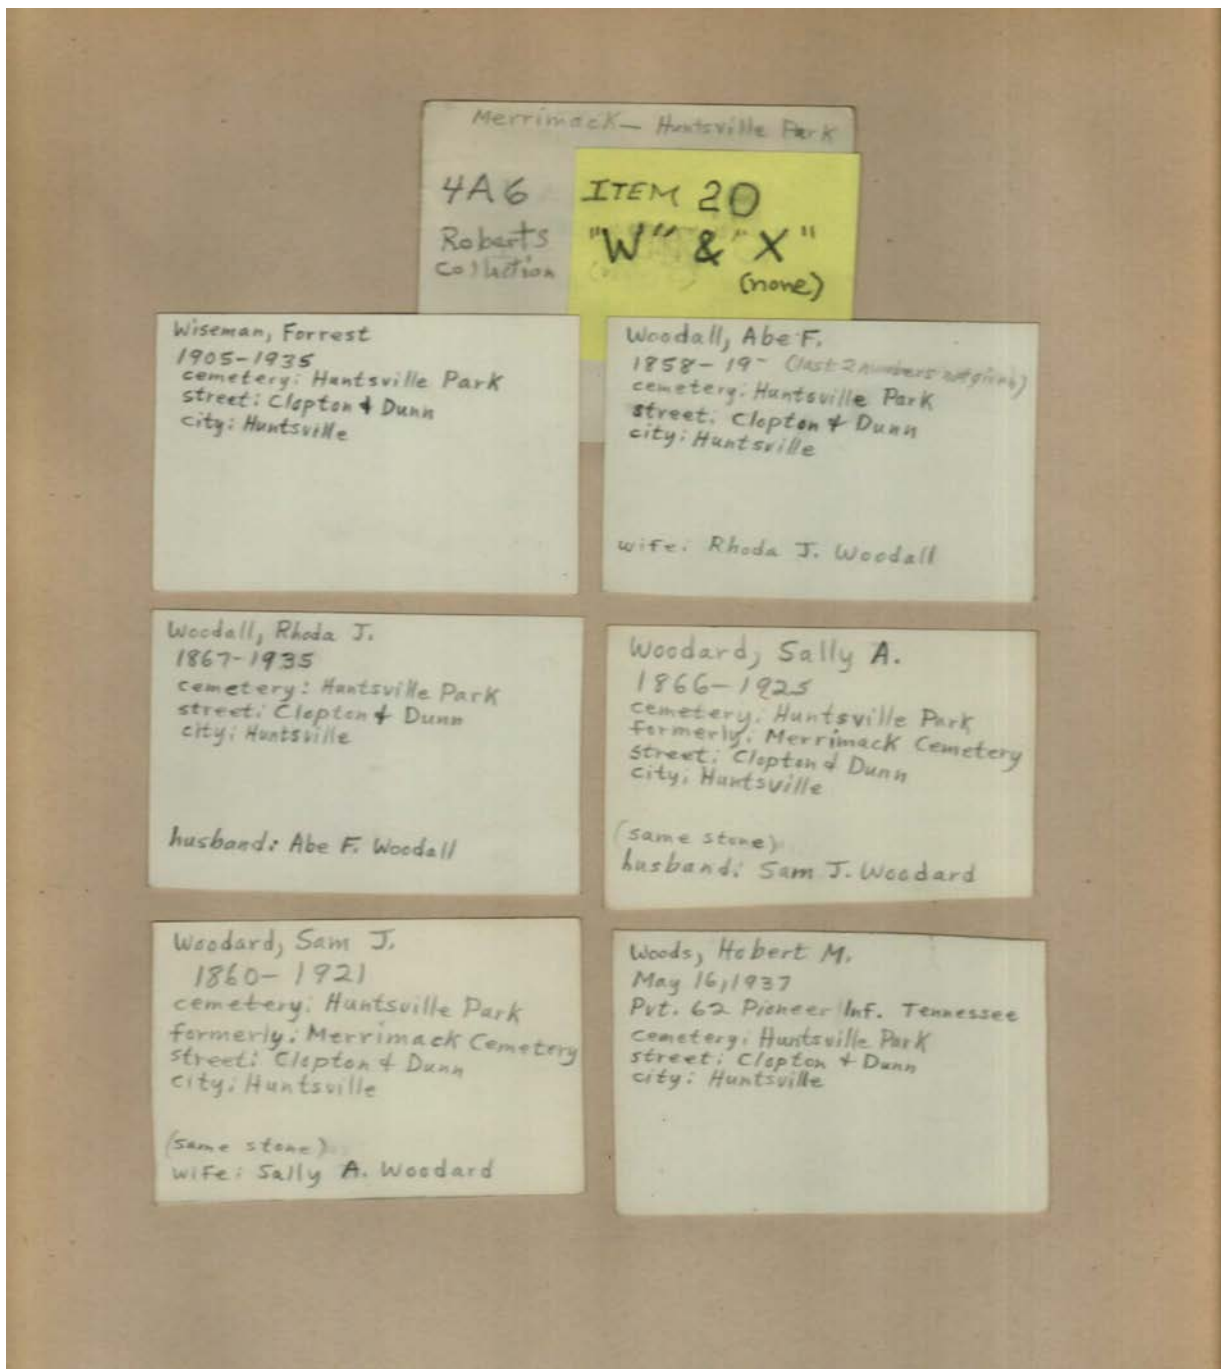 Merrimack— Huntsville Park
4A6
Roberts
Collection
ITEM 20
"W" & "X"
(none)
Wiseman, Forrest
1905-1935
cemetery: Huntsville Park
street: Clopton & Dunn
city: Huntsville
Woodall, Abe F.
1858- 19- (last 2 numbers not given)
cemetery: Huntsville Park
street: Clopton & Dunn
city: Huntsville
wife: Rhoda J. Woodall
Woodall, Rhoda J.
1867-1935
cemetery: Huntsville Park
street: Clopton & Dunn
city: Huntsville
husband: Abe F. Woodall
Woodard, Sally A.
1866-1925
cemetery: Huntsville Park
formerly: Merrimack Cemetery
street: Clopton & Dunn
city: Huntsville
(same stone)
husband: Sam J. Woodard
Woodard, Sam J.
1860- 1921
cemetery: Huntsville Park
formerly: Merrimack Cemetery
street: Clopton & Dunn
city: Huntsville
(same stone)
wife: Sally A. Woodard
Woods, Hobert M.
May 16, 1937
Pvt. 62 Pioneer Inf. Tennessee
cemetery: Huntsville Park
street: Clopton & Dunn
city: Huntsville